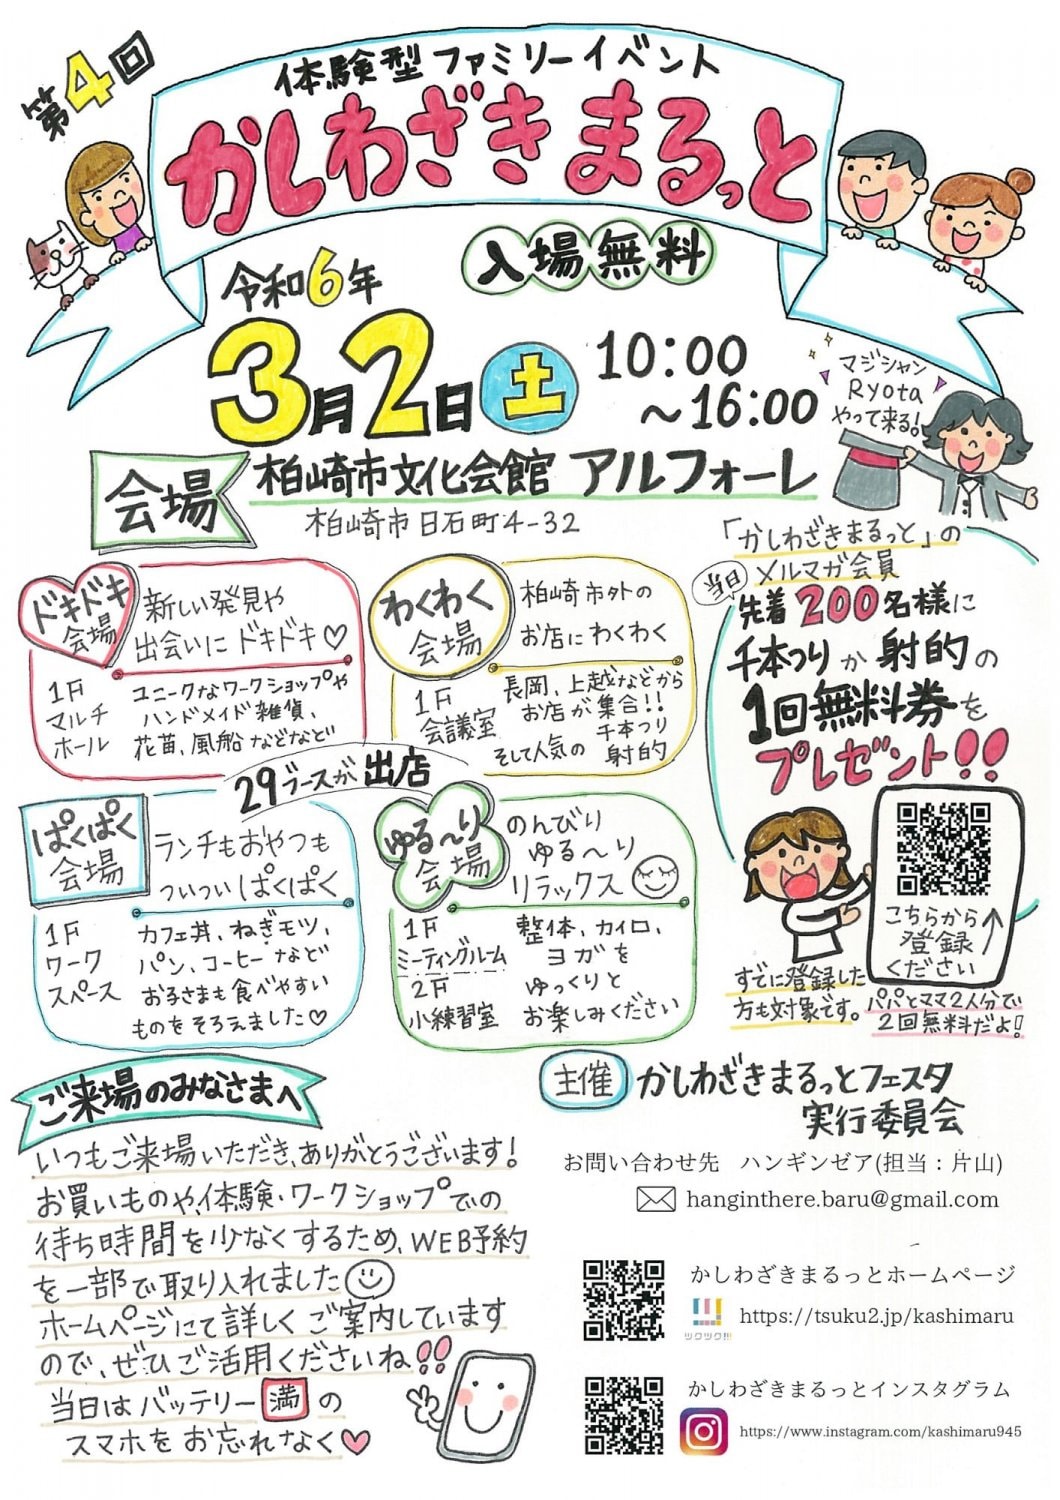 第4回
体験型ファミリーイベント
かしわざきまるっと
入場無料
令和6年
3月2日土
10:00
～16:00
マジシャン
Ryota
やって来る!
会場
柏崎市文化会館 アルフォーレ
柏崎市日石町4-32
「かしわざきまるっと」の
メルマガ会員
当日
先着200名様に
千本つりか射的の
1回無料券を
プレゼント!!
ドキドキ
会場
新しい発見や
出会いにドキドキ♡
1F
マルチ
ホール
ユニークなワークショップや
ハンドメイド雑貨、
花苗、風船などなど
わくわく
会場
柏崎市外の
お店にわくわく
1F
会議室
長岡、上越などから
お店が集合!!
そして人気の 千本つり
射的
29ブースが出店
ぱくぱく
会場
ランチもおやつも
ついついぱくぱく
1F
ワーク
スペース
カフェ丼、ねぎモツ、
パン、コーヒーなど
お子さまも食べやすい
ものをそろえました♡
ゆる～り
会場
のんびり
ゆる～り
リラックス
1F
ミーティングルーム
2F
小練習室
整体、カイロ、
ヨガを
ゆっくりと
お楽しみください
こちらから
登録
ください
すでに登録した
方も対象です。
パパとママ2人分で
2回無料だよ!
ご来場のみなさまへ
いつもご来場いただき、ありがとうございます!
お買いものや、体験・ワークショップでの
待ち時間を少なくするため、WEB予約
を一部で取り入れました
ホームページにて詳しくご案内しています
ので、ぜひご活用くださいね!!
当日はバッテリー満の
スマホをお忘れなく♡
主催 かしわざきまるっとフェスタ
実行委員会
お問い合わせ先 ハンギンゼア(担当：片山)
hanginthere.baru@gmail.com
かしわざきまるっとホームページ
ツクツク!!!
https://tsuku2.jp/kashimaru
かしわざきまるっとインスタグラム
https://www.instagram.com/kashimaru945